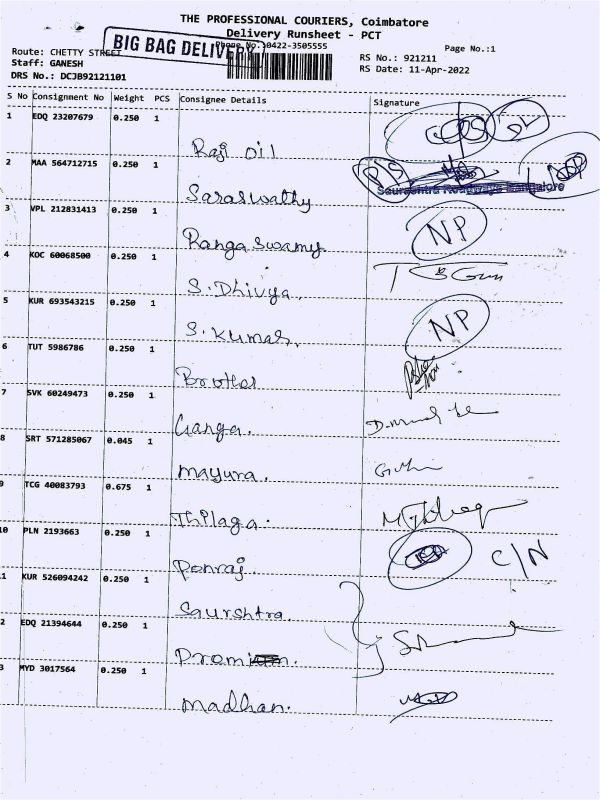 THE PROFESSIONAL COURIERS, Coimbatore
Delivery Runsheet - PCT
BIG BAG DELIVERY
Phone No.:0422-3505555
Page No.:1
Route: CHETTY STREET
RS No.: 921211
Staff: GANESH
RS Date: 11-Apr-2022
DRS No.: DCJB92121101
S No Consignment No Weight PCS Consignee Details Signature
1 EDQ 23207679 0.250 1
Raji oil DL
2 MAA 564712715 0.250 1
Saraswathy
3 VPL 212831413 0.250 1
Ranga Swamy NP
4 KOC 60068500 0.250 1
S. Dhivya.
5 KUR 693543215 0.250 1
S. Kumar. NP
6 TUT 5986786 0.250 1
Brother
7 SVK 60249473 0.250 1
Ganga.
8 SRT 571285067 0.045 1
mayura.
9 TCG 40083793 0.675 1
Thilaga.
10 PLN 2193663 0.250 1
Ponraj. C/N
1 KUR 526094242 0.250 1
Saurshtra.
2 EDQ 21394644 0.250 1
3 MYD 3017564 0.250 1
Madhan.